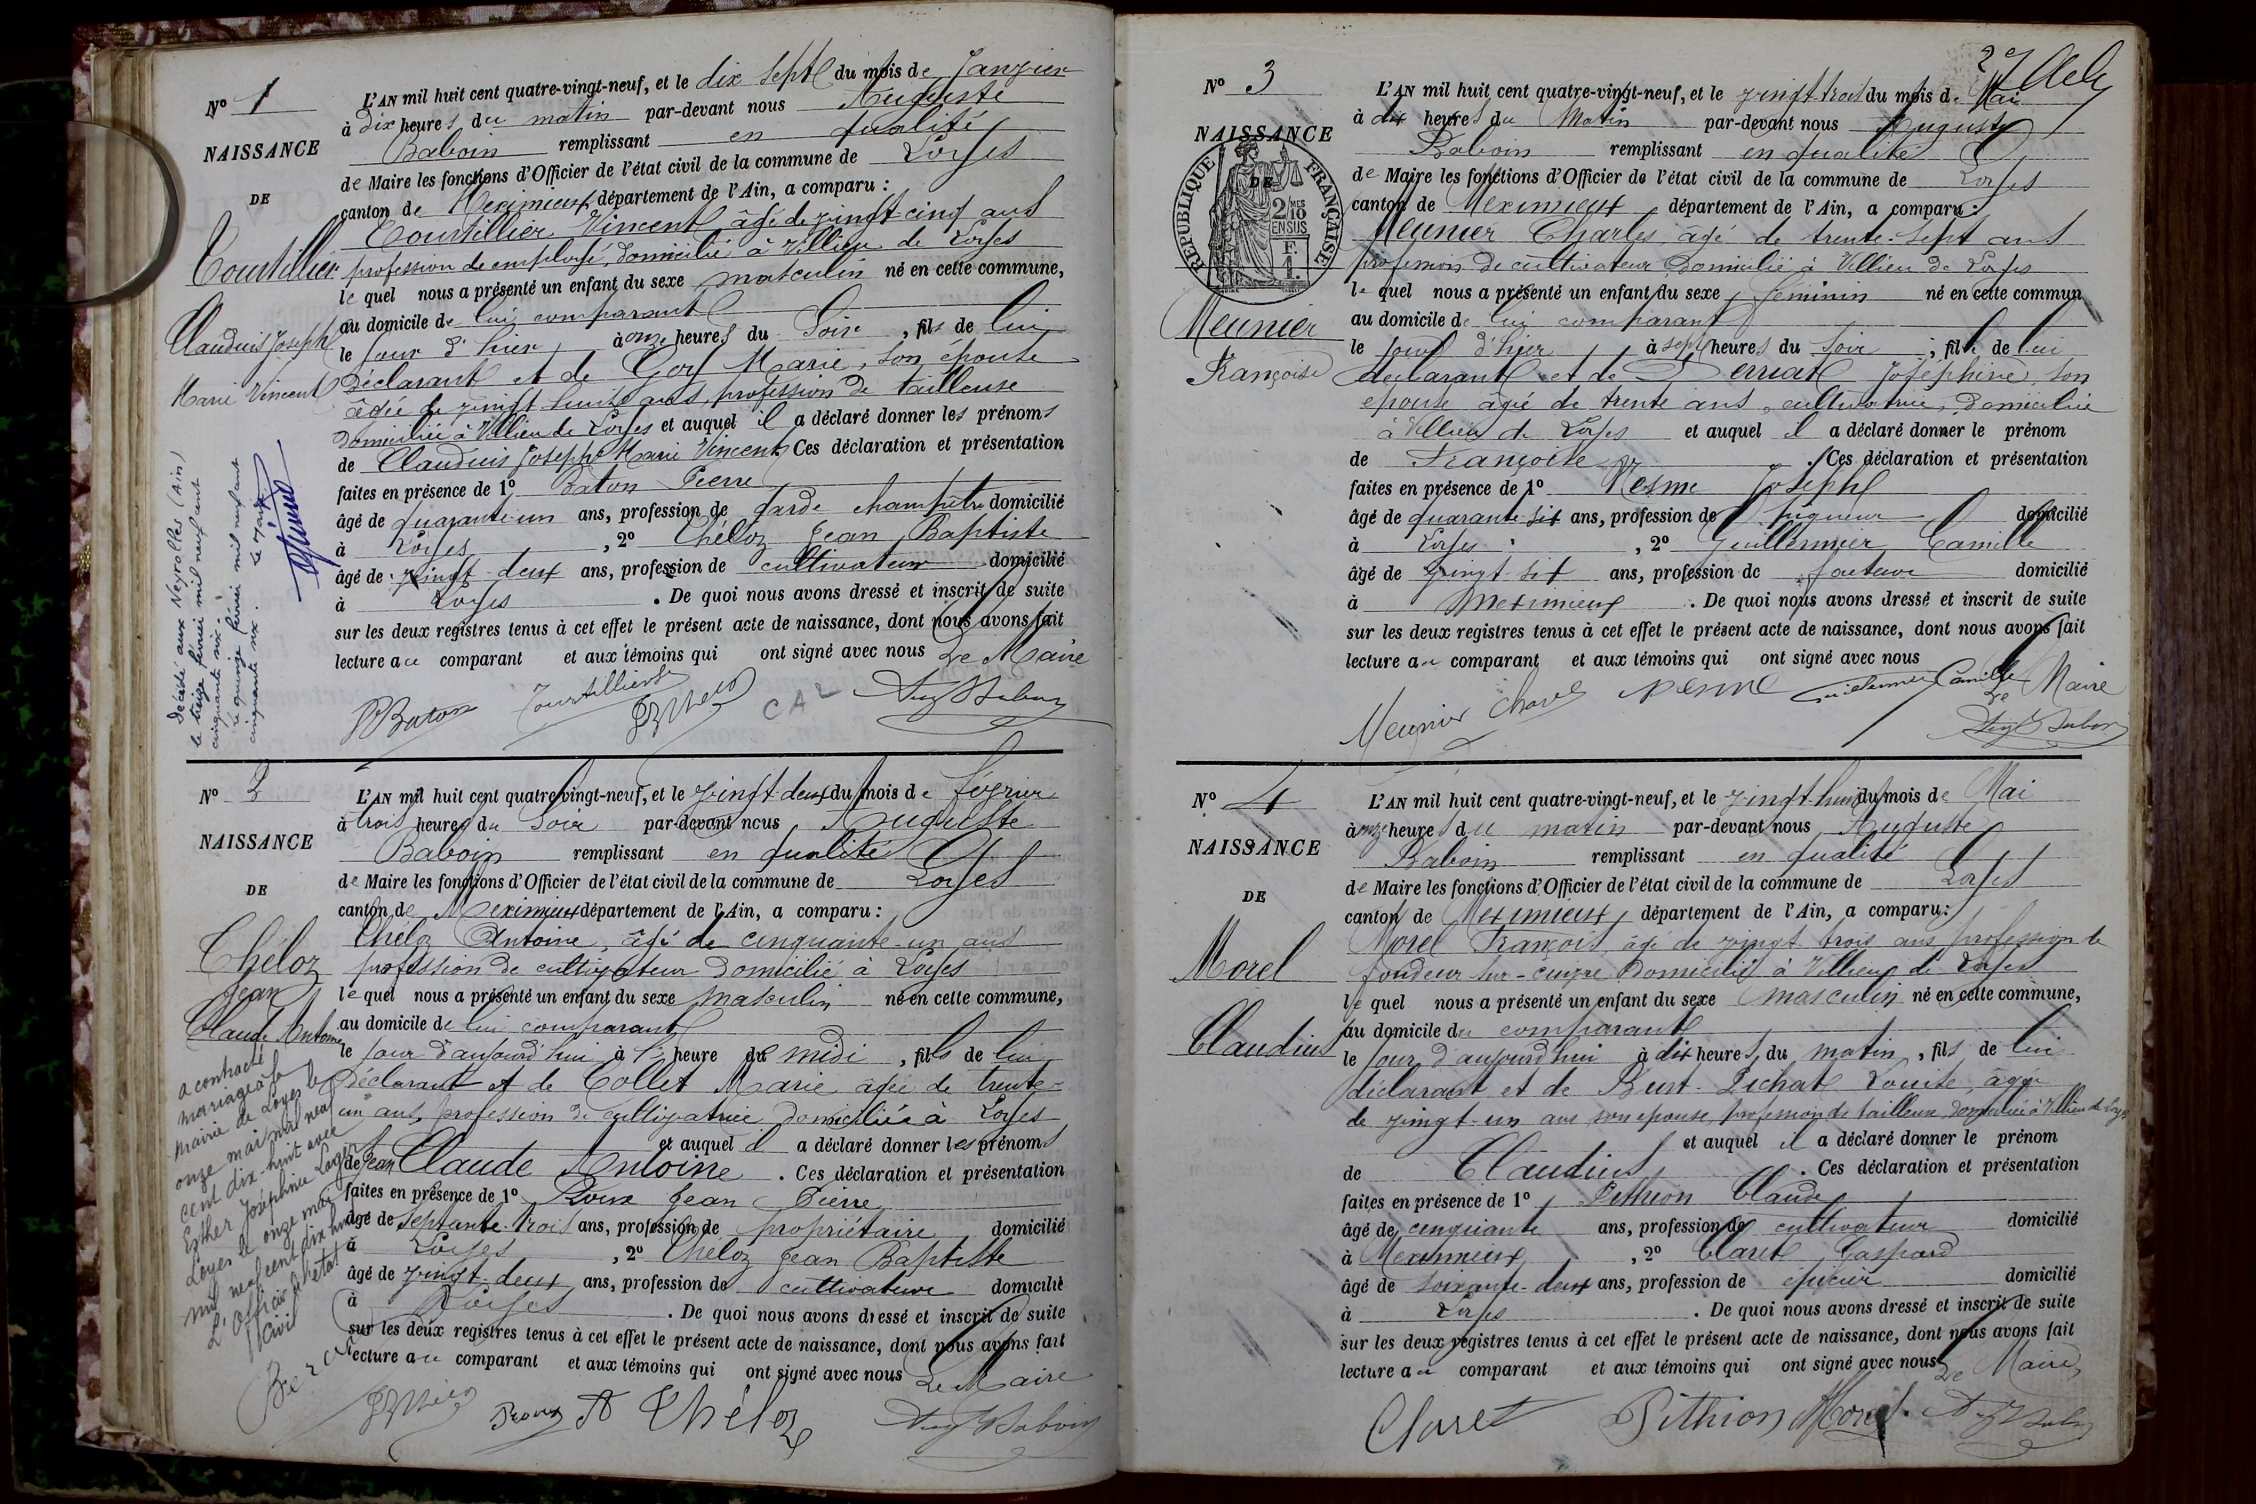 N° 1
NAISSANCE
DE
Tourtillier
Claudius Joseph
Marie Vincent
décédé aux Neyrolles (Ain)
le treize février mil neuf cent
cinquante six.
le quinze février mil neuf cent
cinquante six. Le Maire
L'AN mil huit cent quatre-vingt-neuf, et le dix sept du mois de Janvier
à dix heures du matin par-devant nous Auguste
Baboin remplissant en qualité
de Maire les fonctions d'Officier de l'état civil de la commune de Loyes
canton de Meximieux, département de l'Ain, a comparu :
Tourtillier Vincent âgé de vingt-cinq ans
profession de employé, domicilié à Villieu de Loyes
le quel nous a présenté un enfant du sexe masculin né en cette commune,
au domicile de lui comparant
le jour d'hier, à onze heures du Soir, fils de lui
déclarant et de Goy Marie, son épouse
âgée de vingt huit ans, profession de tailleuse
domiciliée à Villieu de Loyes et auquel il a déclaré donner les prénoms
de Claudius Joseph Marie Vincent Ces déclaration et présentation
faites en présence de 1° Baton Pierre
âgé de quarante-un ans, profession de garde champêtre domicilié
à Loyes, 2° Chéloz Jean Baptiste
âgé de vingt-deux ans, profession de cultivateur domicilié
à Loyes. De quoi nous avons dressé et inscrit de suite
sur les deux registres tenus à cet effet le présent acte de naissance, dont nous avons fait
lecture au comparant et aux témoins qui ont signé avec nous Le Maire
P Baton Tourtillier CAL Aug Baboin
N° 2
NAISSANCE
DE
Chéloz
Jean
Claude Antoine
a contracté
mariage à la
mairie de Loyes le
onze mai mil neuf
cent dix-huit avec
Esther Joséphine Lager
Loyes le onze mai
mil neuf cent dix huit
L'Officier de l'état
Civil
L'AN mil huit cent quatre-vingt-neuf, et le vingt-deux du mois de février
à trois heures du Soir par-devant nous Auguste
Baboin remplissant en qualité
de Maire les fonctions d'Officier de l'état civil de la commune de Loyes
canton de Meximieux département de l'Ain, a comparu :
Chéloz Antoine, âgé de cinquante-un ans
profession de cultivateur domicilié à Loyes
le quel nous a présenté un enfant du sexe masculin né en cette commune,
au domicile de lui comparant
le jour d'aujourd'hui à heure du midi, fils de lui
déclarant et de Collet Marie âgée de trente-
un ans, profession de cultivatrice domiciliée à Loyes
et auquel il a déclaré donner les prénoms
de Jean Claude Antoine. Ces déclaration et présentation
faites en présence de 1° Roux Jean Pierre
âgé de septante-trois ans, profession de propriétaire domicilié
à Loyes, 2° Chéloz Jean Baptiste
âgé de vingt-deux ans, profession de cultivateur domicilié
à Loyes. De quoi nous avons dressé et inscrit de suite
sur les deux registres tenus à cet effet le présent acte de naissance, dont nous avons fait
lecture au comparant et aux témoins qui ont signé avec nous Le Maire
A Chéloz Aug Baboin
N° 3
NAISSANCE
DE
RÉPUBLIQUE FRANÇAISE
2 MES
10
EN SUS
F.
1.
Meunier
Françoise
L'AN mil huit cent quatre-vingt-neuf, et le vingt-trois du mois de Mai
à dix heures du Matin par-devant nous Auguste
Baboin remplissant en qualité
de Maire les fonctions d'Officier de l'état civil de la commune de Loyes
canton de Meximieux, département de l'Ain, a comparu :
Meunier Charles, âgé de trente-sept ans
profession de cultivateur domicilié à Villieu de Loyes
le quel nous a présenté un enfant du sexe féminin né en cette commun
au domicile de lui comparant
le jour d'hier, à sept heures du Soir, fille de lui
déclarant et de Joséphine, son
épouse âgée de trente ans, cultivatrice, domiciliée
à Villieu de Loyes et auquel il a déclaré donner le prénom
de Françoise. Ces déclaration et présentation
faites en présence de 1° Nesme Joseph
âgé de quarante-six ans, profession de piqueur domicilié
à Loyes, 2° Guillermier Camille
âgé de vingt-six ans, profession de facteur domicilié
à Meximieux. De quoi nous avons dressé et inscrit de suite
sur les deux registres tenus à cet effet le présent acte de naissance, dont nous avons fait
lecture au comparant et aux témoins qui ont signé avec nous
Meunier Charles Nesme Guillermier Camille Le Maire
Aug Baboin
N° 4
NAISSANCE
DE
Morel
Claudius
L'AN mil huit cent quatre-vingt-neuf, et le vingt-huit du mois de Mai
à onze heures du matin par-devant nous Auguste
Baboin remplissant en qualité
de Maire les fonctions d'Officier de l'état civil de la commune de Loyes
canton de Meximieux, département de l'Ain, a comparu :
Morel François âgé de vingt-trois ans, profession de
fondeur sur-cuivre domicilié à Villieu de Loyes
le quel nous a présenté un enfant du sexe masculin né en cette commune,
au domicile du comparant
le jour d'aujourd'hui à dix heures du matin, fils de lui
déclarant et de Pichat Louise, âgée
de vingt-un ans son épouse, profession de tailleuse, domiciliée à Villieu de Loyes
et auquel il a déclaré donner le prénom
de Claudius. Ces déclaration et présentation
faites en présence de 1° Pithion Claude
âgé de cinquante ans, profession de cultivateur domicilié
à Meximieux, 2° Claret Gaspard
âgé de soixante-deux ans, profession de épicier domicilié
à Loyes. De quoi nous avons dressé et inscrit de suite
sur les deux registres tenus à cet effet le présent acte de naissance, dont nous avons fait
lecture au comparant et aux témoins qui ont signé avec nous Le Maire
Claret Pithion Morel Aug Baboin